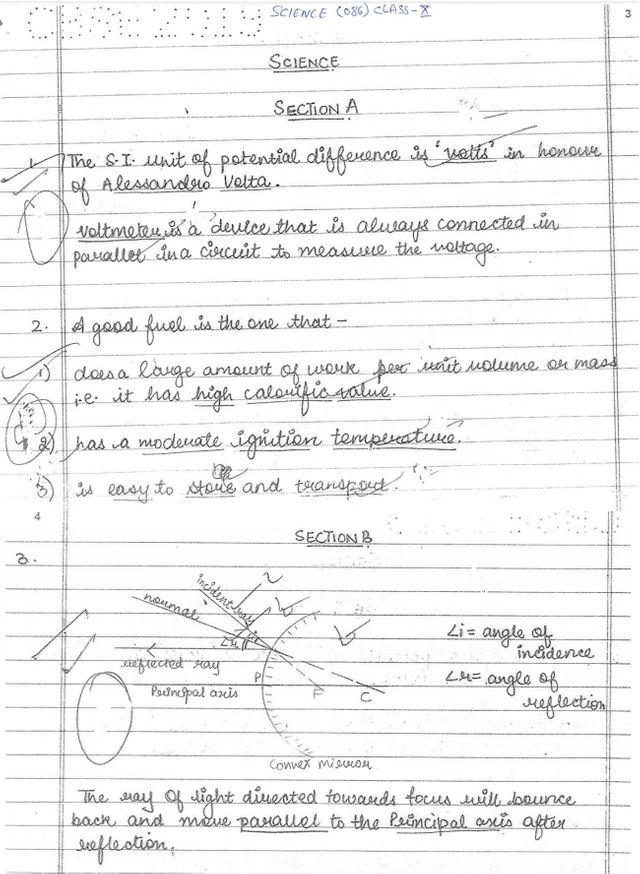 CBSE 2019
SCIENCE (086) CLASS-X
3
SCIENCE
SECTION A
1. The S.I. unit of potential difference is 'volts' in honour
of Alessandro Volta.
Voltmeter is a device that is always connected in
parallel in a circuit to measure the voltage.
2. A good fuel is the one that -
1) does a large amount of work per unit volume or mass
i.e. it has high calorific value.
2) has a moderate ignition temperature.
3) is easy to store and transport.
4
SECTION B
3.
incident ray
normal
∠i
∠r
reflected ray
P
Principal axis
F
C
∠i = angle of
incidence
∠r = angle of
reflection
Convex mirror
The ray of light directed towards focus will bounce
back and move parallel to the Principal axis after
reflection.